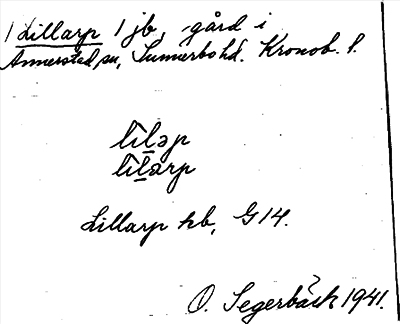 1 Lillarp 1 jb, gård i
Annerstad sn, Sunnerbo hd. Kronob. l.
lìləp
lìlarp
Lillarp kb, G14.
O. Segerbäck 1941.